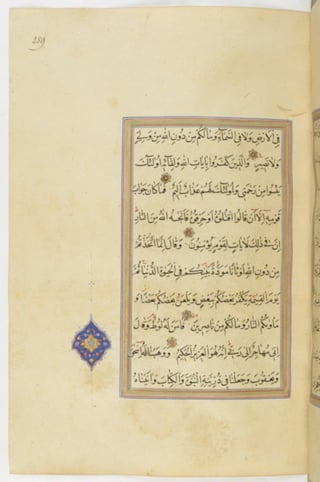 289
فِي الْأَرْضِ وَلَا فِي السَّمَاءِ وَمَا لَكُمْ مِنْ دُونِ اللَّهِ مِنْ وَلِيٍّ
وَلَا نَصِيرٍ وَالَّذِينَ كَفَرُوا بِآيَاتِ اللَّهِ وَلِقَائِهِ أُولَٰئِكَ
يَئِسُوا مِنْ رَحْمَتِي وَأُولَٰئِكَ لَهُمْ عَذَابٌ أَلِيمٌ فَمَا كَانَ جَوَابَ
قَوْمِهِ إِلَّا أَنْ قَالُوا اقْتُلُوهُ أَوْ حَرِّقُوهُ فَأَنْجَاهُ اللَّهُ مِنَ النَّارِ
إِنَّ فِي ذَٰلِكَ لَآيَاتٍ لِقَوْمٍ يُؤْمِنُونَ وَقَالَ إِنَّمَا اتَّخَذْتُمْ
مِنْ دُونِ اللَّهِ أَوْثَانًا مَوَدَّةَ بَيْنِكُمْ فِي الْحَيَوٰةِ الدُّنْيَا ثُمَّ
يَوْمَ الْقِيَٰمَةِ يَكْفُرُ بَعْضُكُمْ بِبَعْضٍ وَيَلْعَنُ بَعْضُكُمْ بَعْضًا وَ
مَأْوَٰكُمُ النَّارُ وَمَا لَكُمْ مِنْ نَاصِرِينَ فَآمَنَ لَهُ لُوطٌ وَقَالَ
إِنِّي مُهَاجِرٌ إِلَىٰ رَبِّي إِنَّهُ هُوَ الْعَزِيزُ الْحَكِيمُ وَوَهَبْنَا لَهُ إِسْحَٰقَ
وَيَعْقُوبَ وَجَعَلْنَا فِي ذُرِّيَّتِهِ النُّبُوَّةَ وَالْكِتَابَ وَآتَيْنَاهُ